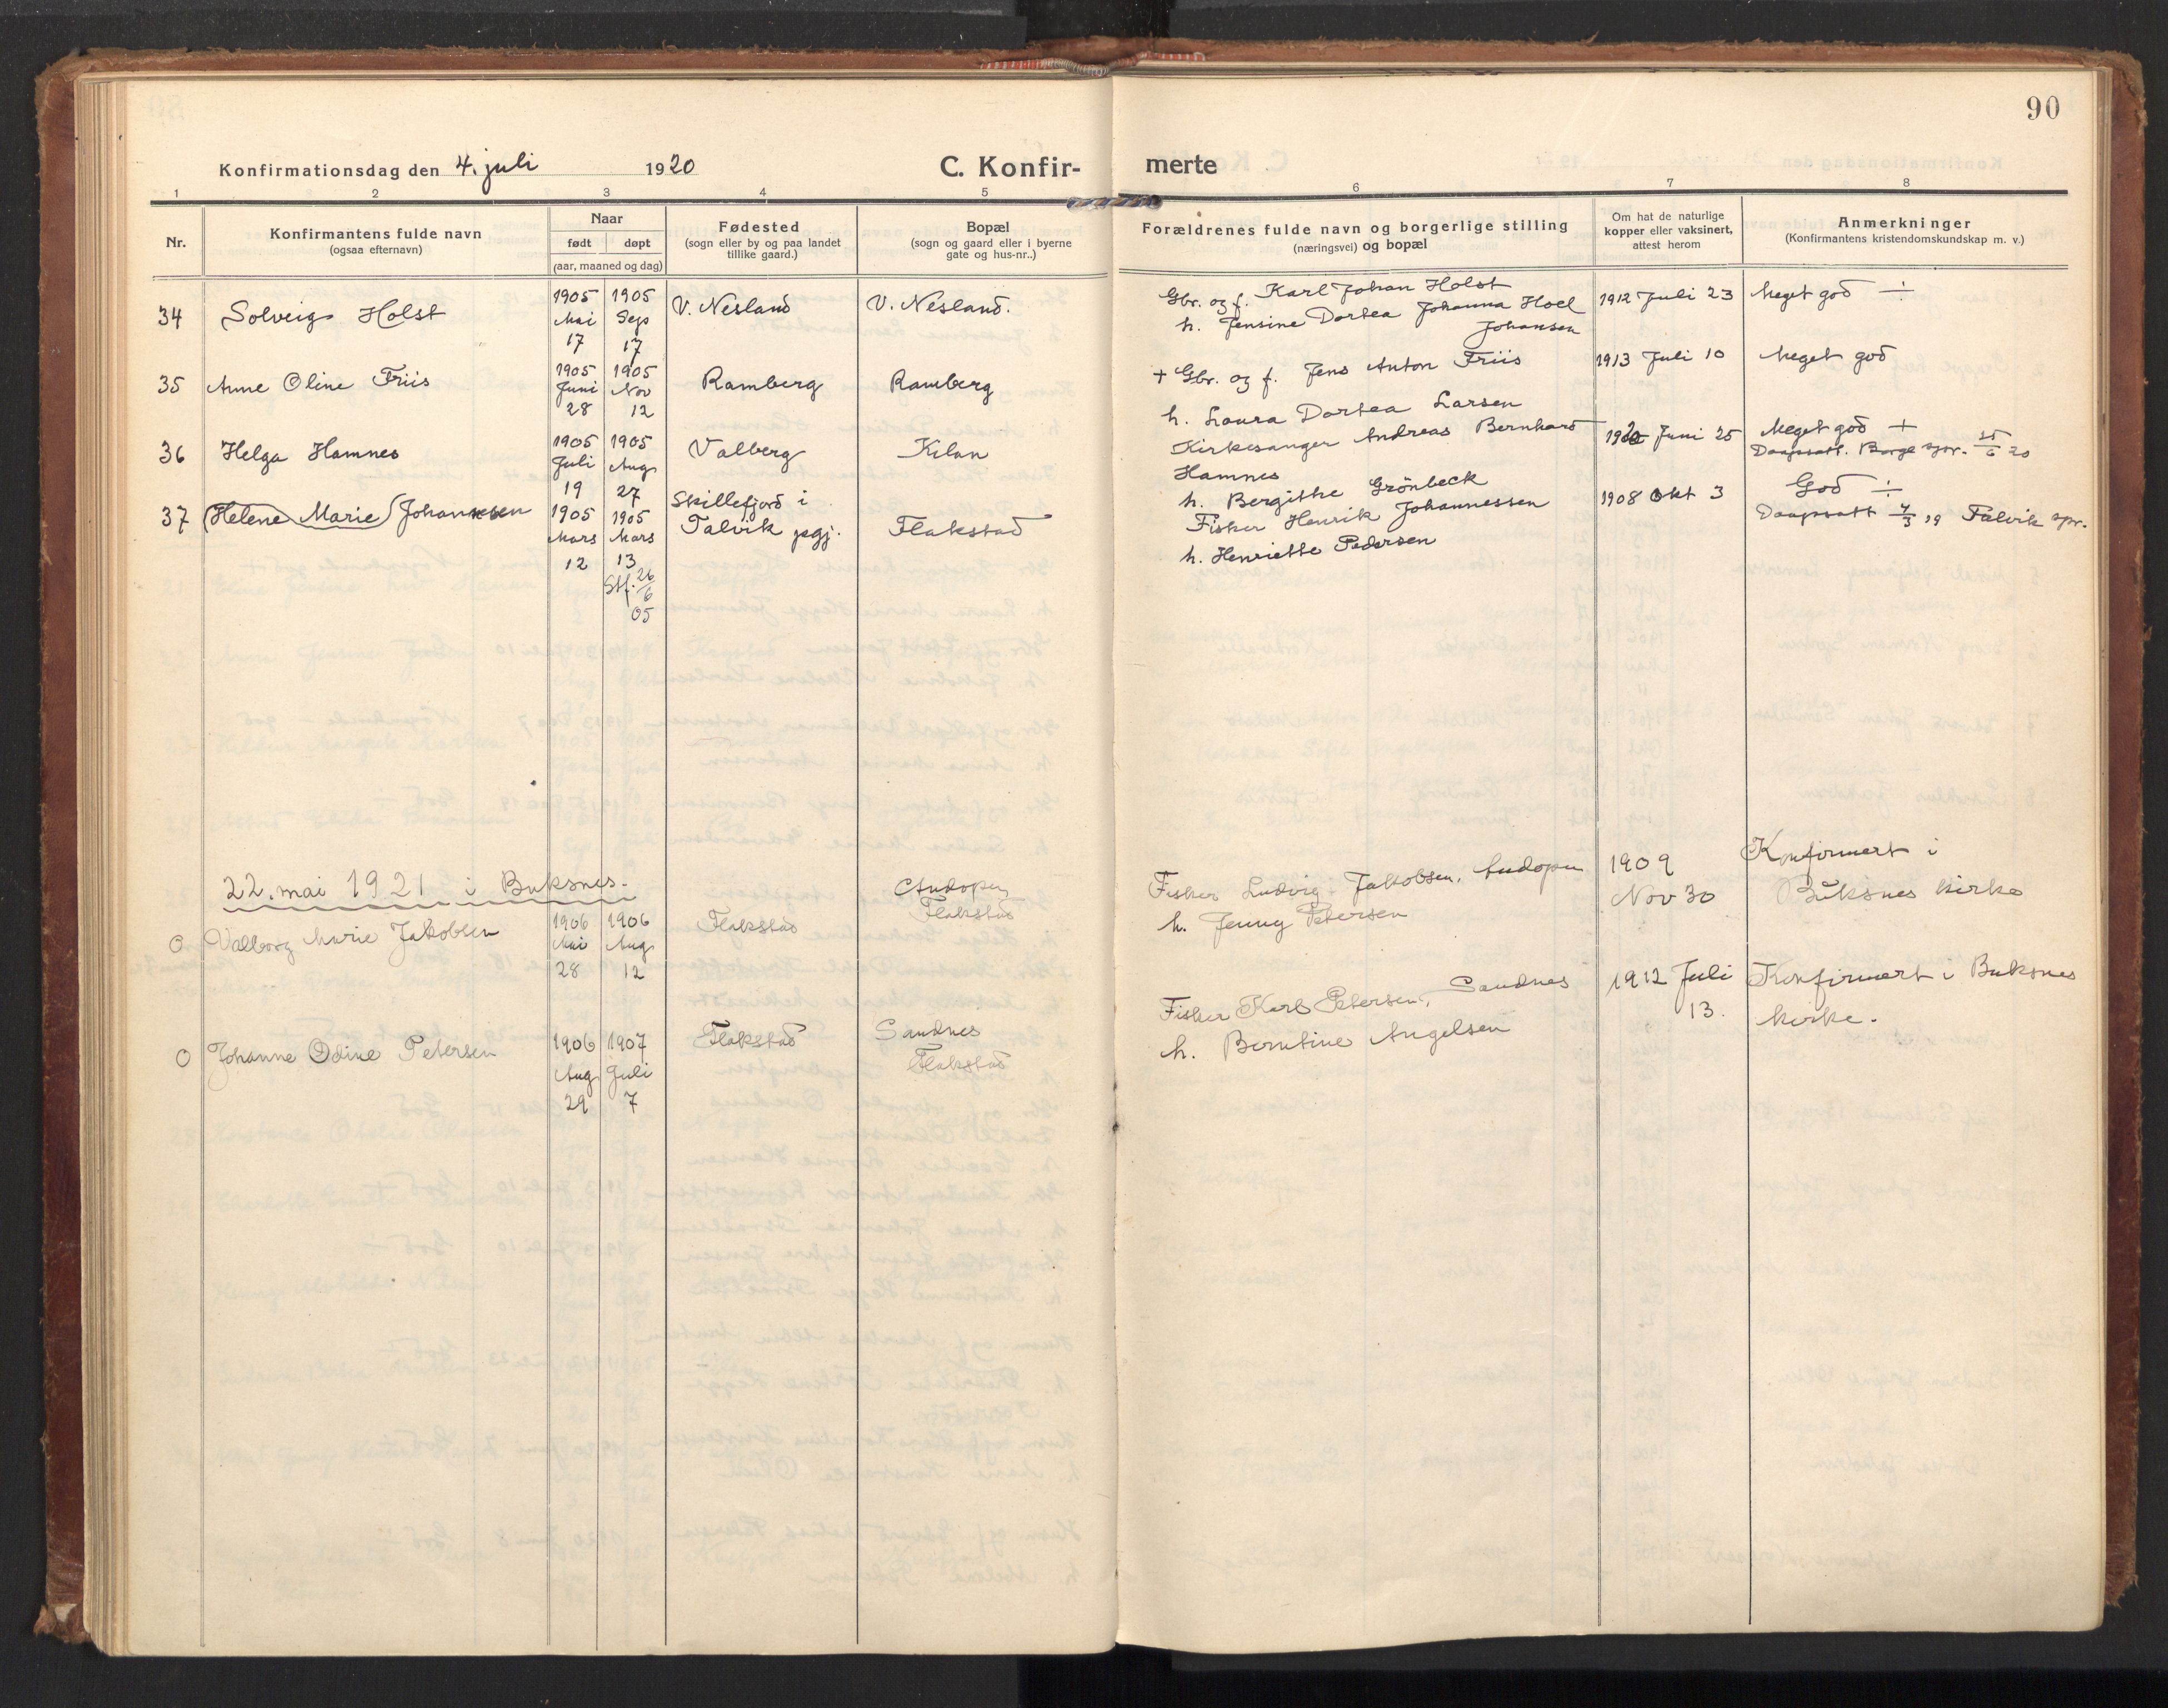 90
Konfirmationsdag den 4. juli 1920
C. Konfir-
merte
1 2 3 4 5 6 7 8
Nr.
Konfirmantens fulde navn
(ogsaa efternavn)
Naar
født døpt
(aar, maaned og dag)
Fødested
(sogn eller by og paa landet
tillike gaard.)
Bopæl
(sogn og gaard eller i byerne
gate og hus-nr..)
Forældrenes fulde navn og borgerlige stilling
(næringsvei) og bopæl
Om hat de naturlige
kopper eller vaksinert,
attest herom
Anmerkninger
(Konfirmantens kristendomskundskap m. v.)
34 Solveig Holst
1905 Mai 17
1905 Sep 17
V. Nesland
V. Nesland.
Gbr. og f. Karl Johan Holst
h. Jensine Dortea Johanna Hoel
Johansen
1912 Juli 23
Meget god ÷
35 Anne Oline Friis
1905 Juni 28
1905 Nov 12
Ramberg
Ramberg
+ Gbr. og f. Jens Anton Friis
h. Laura Dortea Larsen
1913 Juli 10
Meget god
36 Helga Hamnes
1905 Juli 19
1905 Aug 27
Valberg
Kilan
Kirkesanger Andreas Bernhard
Hamnes
h. Bergithe Grönbeck
1920 Juni 25
Meget god +
Daapsatt. Borge spr. 25/6 20
37 (Helene Marie) Johannesen
1905 Mars 12
1905 Mars 13
Stf. 26/6 05
Skillefjord i
Talvik pgj.
Flakstad
Fisker Henrik Johannessen
h. Henriette Pedersen
1908 Okt 3
God ÷
Daapsatt 4/3 19 Talvik spr.
22. mai 1921 i Buksnes.
O Valborg Marie Jakobsen
1906 Mai 28
1906 Aug 12
Flakstad
Andopen
Flakstad
Fisker Ludvig Jakobsen, Andopen
h. Jenny Petersen
1909
Nov 30
Konfirmert i
Buksnes kirke
O Johanne Odine Petersen
1906 Aug 29
1907 Juli 7
Flakstad
Sandnes
Flakstad
Fisker Karl Petersen, Sandnes
h. Berntine Angelsen
1912 Juli
13.
Konfirmert i Buksnes
kirke.